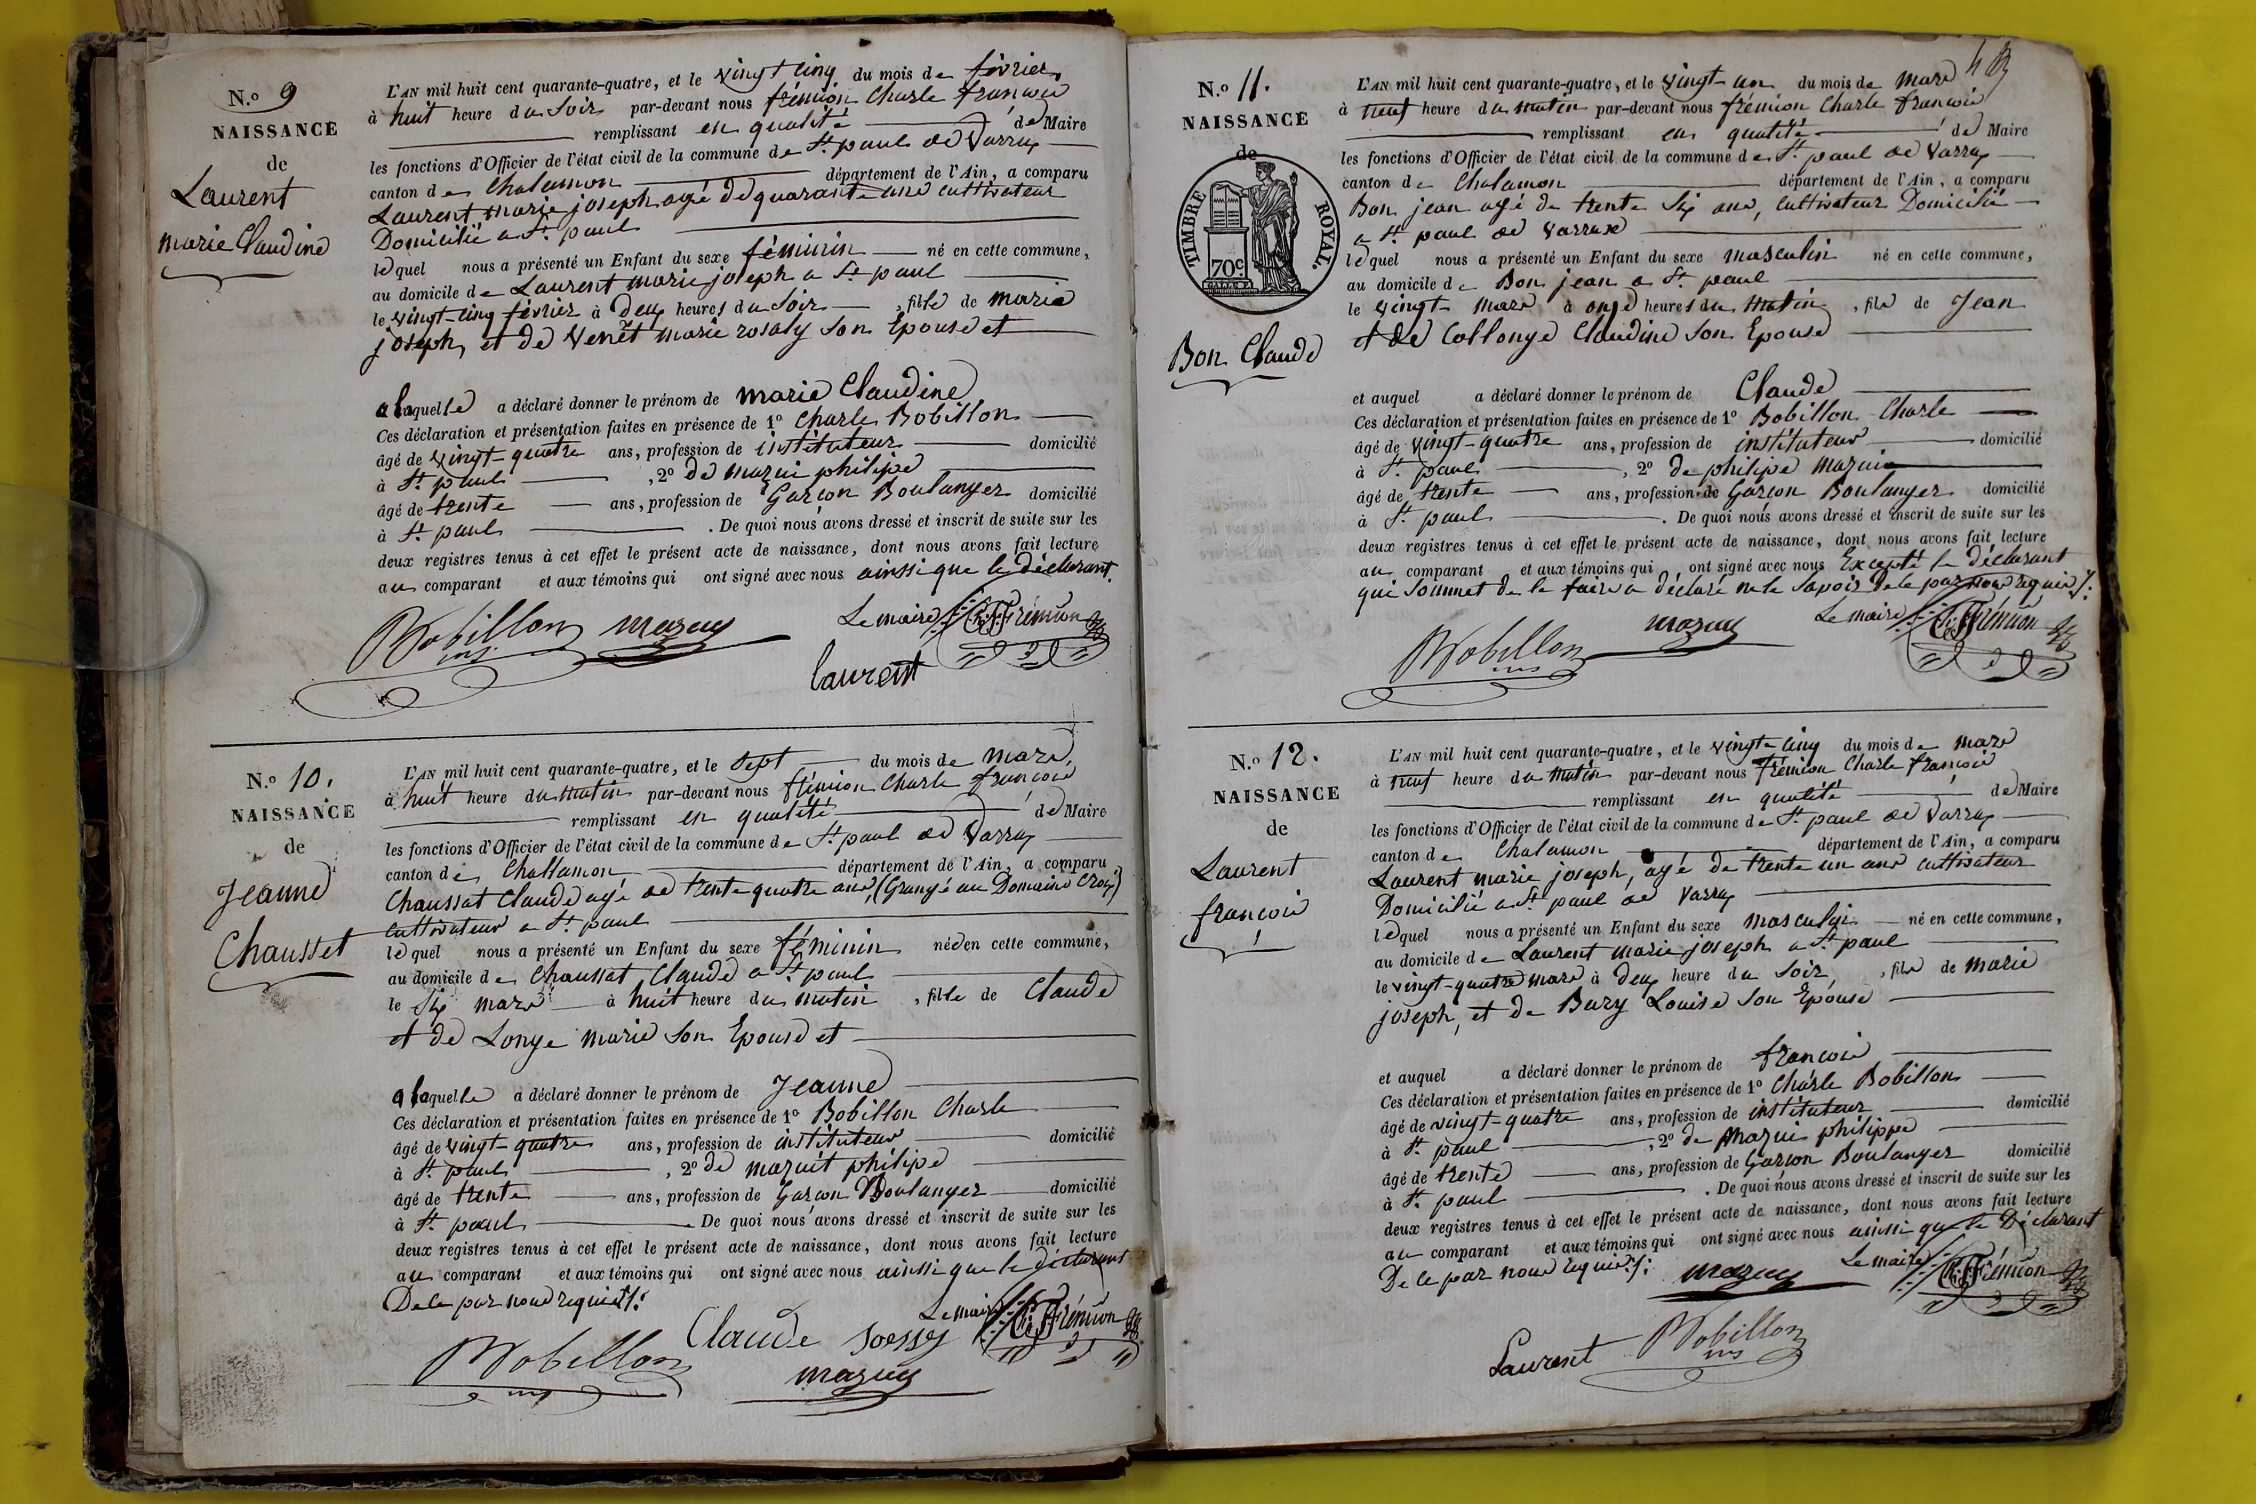 N.o 9
NAISSANCE
de
Laurent
marie Claudine
L'AN mil huit cent quarante-quatre, et le vingt cinq du mois de février
à huit heure du soir par-devant nous frémion Charle françois
remplissant en qualité de Maire
les fonctions d'Officier de l'état civil de la commune de St. paul de Varrax
canton de Chalamon département de l'Ain, a comparu
Laurent marie joseph agé de quarante ans cultivateur
Domicilié a St. paul
lequel nous a présenté un Enfant du sexe féminin né en cette commune,
au domicile de Laurent marie joseph a St. paul
le vingt cinq février à deux heures du soir, fille de marie
joseph, et de Venet marie rosaly son Epouse et
a laquelle a déclaré donner le prénom de marie Claudine
Ces déclaration et présentation faites en présence de 1o Charle Bobillon
âgé de vingt-quatre ans, profession de instituteur domicilié
à St. paul, 2o de mazui philipe
âgé de trente ans, profession de Garçon Boulanger domicilié
à St. paul. De quoi nous avons dressé et inscrit de suite sur les
deux registres tenus à cet effet le présent acte de naissance, dont nous avons fait lecture
au comparant et aux témoins qui ont signé avec nous ainssi que le déclarant.
Le maire Frémion
Bobillon mazuy
ins
laurent
N.o 10.
NAISSANCE
de
Jeanne
Chausset
L'AN mil huit cent quarante-quatre, et le sept du mois de mars,
à huit heure du matin par-devant nous frémion Charle françois
remplissant en qualité de Maire
les fonctions d'Officier de l'état civil de la commune de St. paul de Varrax
canton de Challamon département de l'Ain, a comparu
Chaussat Claude agé de trente quatre ans, (Grangé au Domaine Croix)
cultivateur a St. paul
lequel nous a présenté un Enfant du sexe féminin née en cette commune,
au domicile de Chaussat Claude a St. paul
le six mars à huit heure du matin, fille de Claude
et de Longe marie son Epouse et
a laquelle a déclaré donner le prénom de Jeanne
Ces déclaration et présentation faites en présence de 1o Bobillon Charle
âgé de vingt-quatre ans, profession de instituteur domicilié
à St. paul, 2o de mazuit philipe
âgé de trente ans, profession de Garçon Boulanger domicilié
à St. paul. De quoi nous avons dressé et inscrit de suite sur les
deux registres tenus à cet effet le présent acte de naissance, dont nous avons fait lecture
au comparant et aux témoins qui ont signé avec nous ainssi que le déclarant
De ce par nous requis/:
Le maire Frémion
Claude
Bobillon mazuy
ins
N.o 11.
NAISSANCE
de
TIMBRE ROYAL.
70c
Bon Claude
L'AN mil huit cent quarante-quatre, et le vingt-un du mois de mars
à neuf heure du matin par-devant nous frémion Charle françois
remplissant en qualité de Maire
les fonctions d'Officier de l'état civil de la commune de St. paul de Varrax
canton de Chalamon département de l'Ain, a comparu
Bon jean agé de trente six ans, cultivateur Domicilié
a St. paul de Varrax
lequel nous a présenté un Enfant du sexe masculin né en cette commune,
au domicile de Bon jean a St. paul
le vingt mars à onze heures du matin, fils de Jean
et de Collonge Claudine son Epouse
et auquel a déclaré donner le prénom de Claude
Ces déclaration et présentation faites en présence de 1o Bobillon Charle
âgé de vingt-quatre ans, profession de instituteur domicilié
à St. paul, 2o de philipe mazui
âgé de trente ans, profession de Garçon Boulanger domicilié
à St. paul. De quoi nous avons dressé et inscrit de suite sur les
deux registres tenus à cet effet le présent acte de naissance, dont nous avons fait lecture
au comparant et aux témoins qui ont signé avec nous Excepté le déclarant
qui sommet de le faire a déclaré ne le savoir de ce par nous requis/:
Le maire Frémion
Bobillon mazuy
ins
N.o 12.
NAISSANCE
de
Laurent
françois
L'AN mil huit cent quarante-quatre, et le vingt-cinq du mois de mars
à neuf heure du matin par-devant nous frémion Charle françois
remplissant en qualité de Maire
les fonctions d'Officier de l'état civil de la commune de St. paul de Varrax
canton de Chalamon département de l'Ain, a comparu
Laurent marie joseph, agé de trente un ans cultivateur
Domicilié a St. paul de Varrax
lequel nous a présenté un Enfant du sexe masculin né en cette commune,
au domicile de Laurent marie joseph a St. paul
le vingt-quatre mars à deux heure du soir, fils de marie
joseph, et de Bury Louise son Epouse
et auquel a déclaré donner le prénom de françois
Ces déclaration et présentation faites en présence de 1o Charle Bobillon
âgé de vingt-quatre ans, profession de instituteur domicilié
à St. paul, 2o de Mazui philippe
âgé de trente ans, profession de Garçon Boulanger domicilié
à St. paul. De quoi nous avons dressé et inscrit de suite sur les
deux registres tenus à cet effet le présent acte de naissance, dont nous avons fait lecture
au comparant et aux témoins qui ont signé avec nous ainssi que le Déclarant
De ce par nous requis/: mazuy Le maire Frémion
Laurent Bobillon
ins